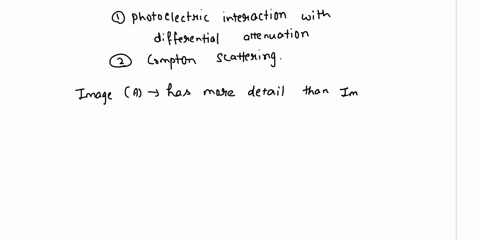 ① photoelectric interaction with
differential attenuation
② Compton scattering.
Image (A) → has more detail than Im